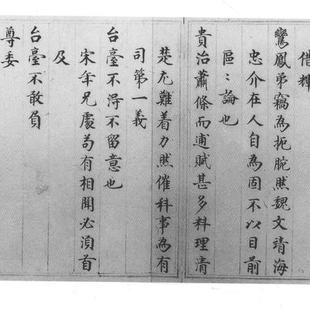 鸞鳳弟竊為扼腕然魏文靖海
忠介在人自為固不以目前
區〻論也
貴治蕭條而逋賦甚多料理清
楚尤難着力然催科事為有
司第一義
台臺不得不留意也
宋年兄處苟有相聞必須首
及
台臺不敢負
尊委